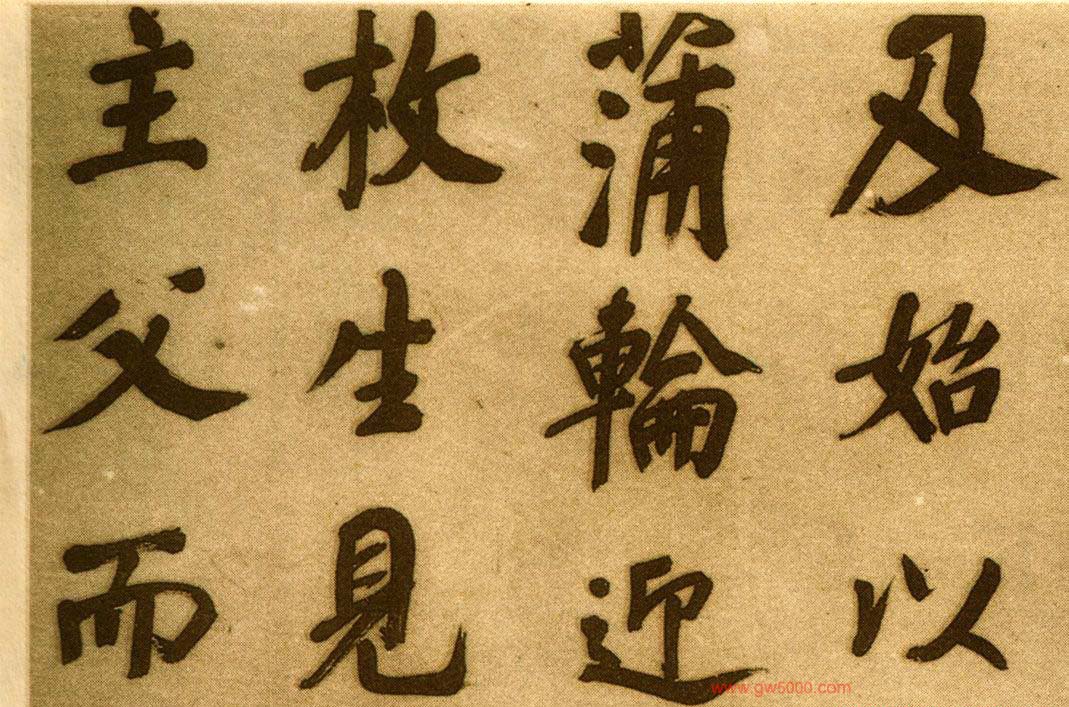 及始以
蒲輪迎
枚生見
主父而
www.gw5000.com